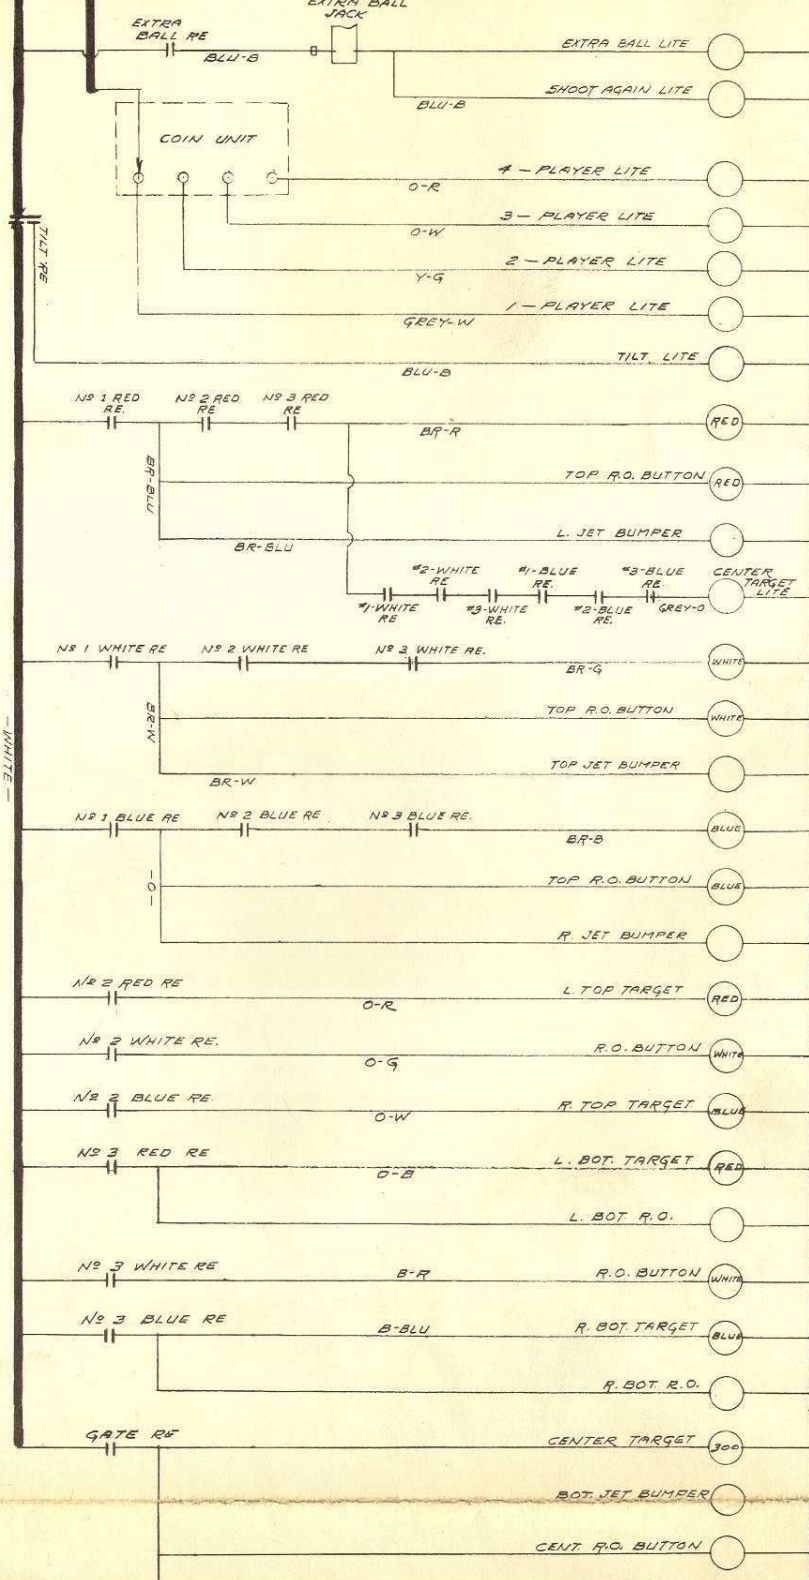 EXTRA BALL
JACK
EXTRA
BALL RE
BLU-B
EXTRA BALL LITE
SHOOT AGAIN LITE
BLU-B
COIN UNIT
4 - PLAYER LITE
O-R
3 - PLAYER LITE
O-W
2 - PLAYER LITE
Y-G
1 - PLAYER LITE
GREY-W
TILT RE
TILT LITE
BLU-B
Nº 1 RED
RE.
Nº 2 RED
RE
Nº 3 RED
RE
BR-R
RED
BR-BLU
TOP R.O. BUTTON
RED
L. JET BUMPER
BR-BLU
#2-WHITE
RE
#1-BLUE
RE.
#3-BLUE
RE.
CENTER
TARGET
LITE
#1-WHITE
RE
#3-WHITE
RE.
#2-BLUE
RE.
GREY-O
Nº 1 WHITE RE
Nº 2 WHITE RE
Nº 3 WHITE RE.
BR-G
WHITE
BR-W
TOP R.O. BUTTON
WHITE
- WHITE -
TOP JET BUMPER
BR-W
Nº 1 BLUE RE
Nº 2 BLUE RE
Nº 3 BLUE RE.
BR-B
BLUE
-O-
TOP R.O. BUTTON
BLUE
R. JET BUMPER
Nº 2 RED RE
O-R
L. TOP TARGET
RED
Nº 2 WHITE RE.
O-G
R.O. BUTTON
WHITE
Nº 2 BLUE RE.
O-W
R. TOP TARGET
BLUE
Nº 3 RED RE
O-B
L. BOT. TARGET
RED
L. BOT R.O.
Nº 3 WHITE RE
B-R
R.O. BUTTON
WHITE
Nº 3 BLUE RE
B-BLU
R. BOT. TARGET
BLUE
R. BOT R.O.
GATE RE
CENTER TARGET
300
BOT. JET BUMPER
CENT. R.O. BUTTON